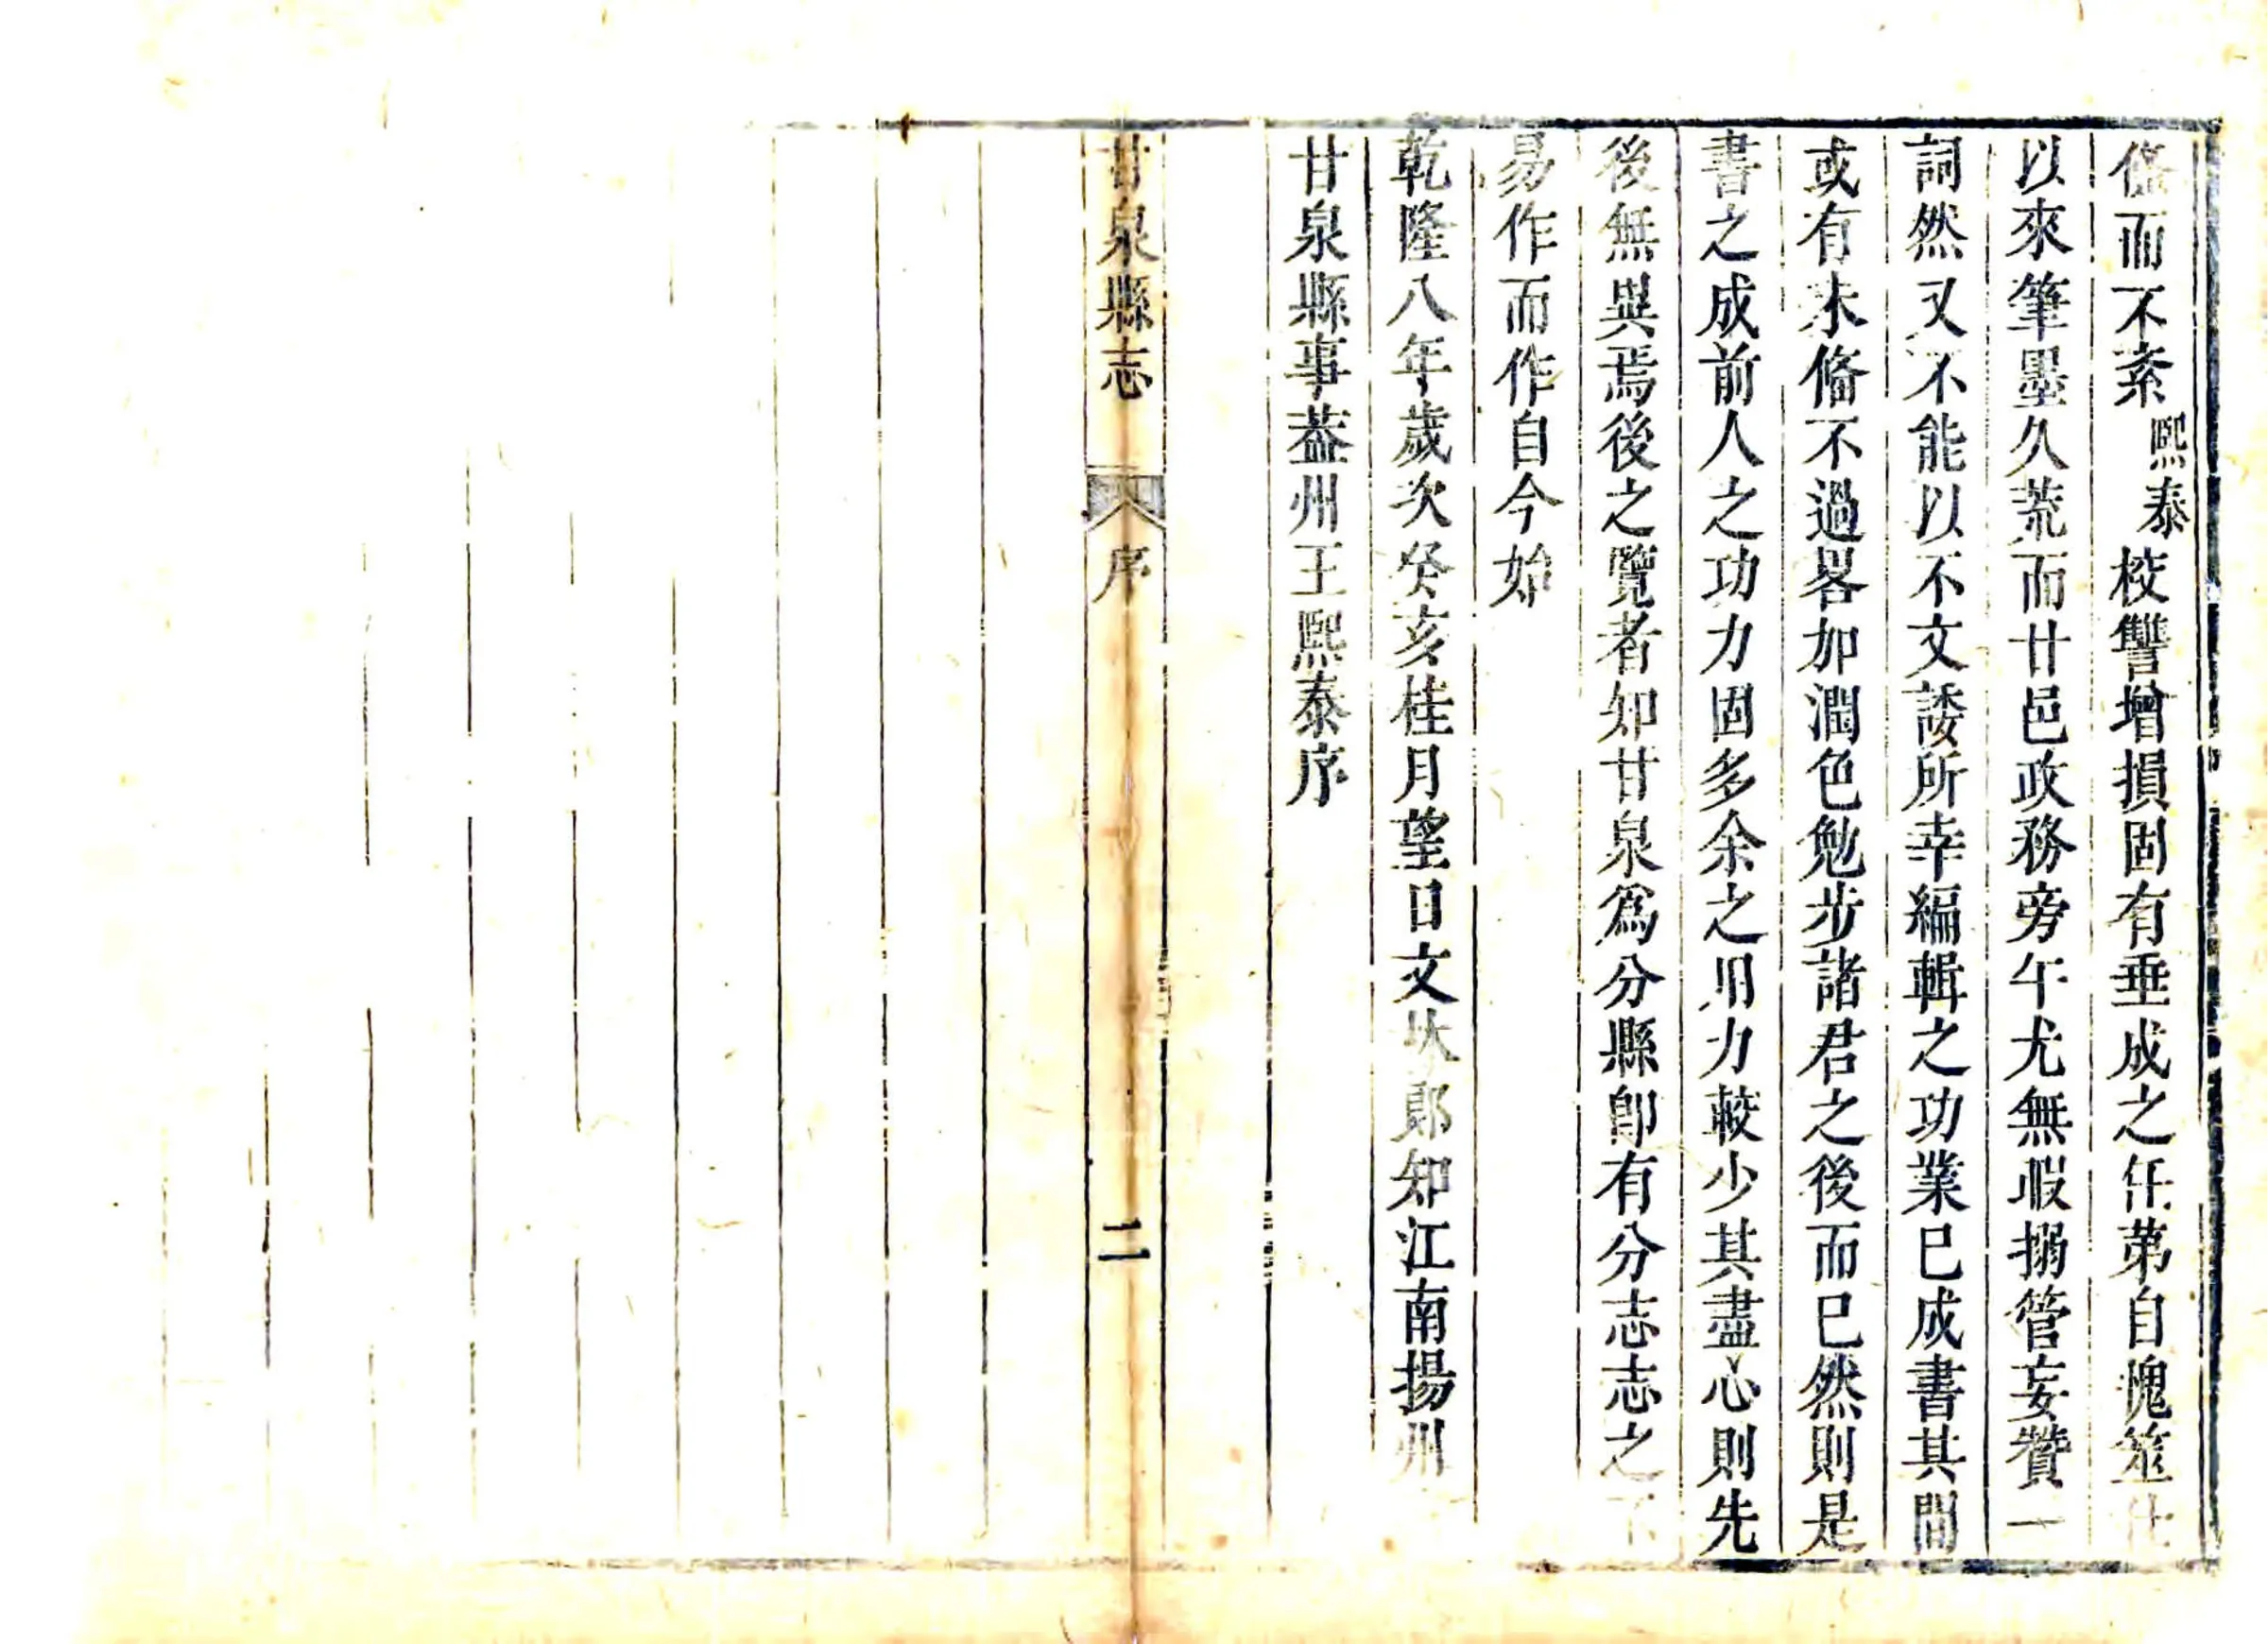 俻而不紊熙泰校讐增損固有垂成之任苐自愧筮仕
以來筆墨久荒而甘邑政務旁午尤無暇搦管妄贊一
詞然又不能以不文諉所幸編輯之功業已成書其間
或有未俻不過畧加潤色勉步諸君之後而已然則是
書之成前人之功力固多余之用力較少其盡心則先
後無異焉後之覽者知甘泉爲分縣卽有分志志之
易作而作自今始
乾隆八年歲次癸亥桂月望日文林郎知江南揚州
甘泉縣事葢州王熙泰序
甘泉縣志
序
二